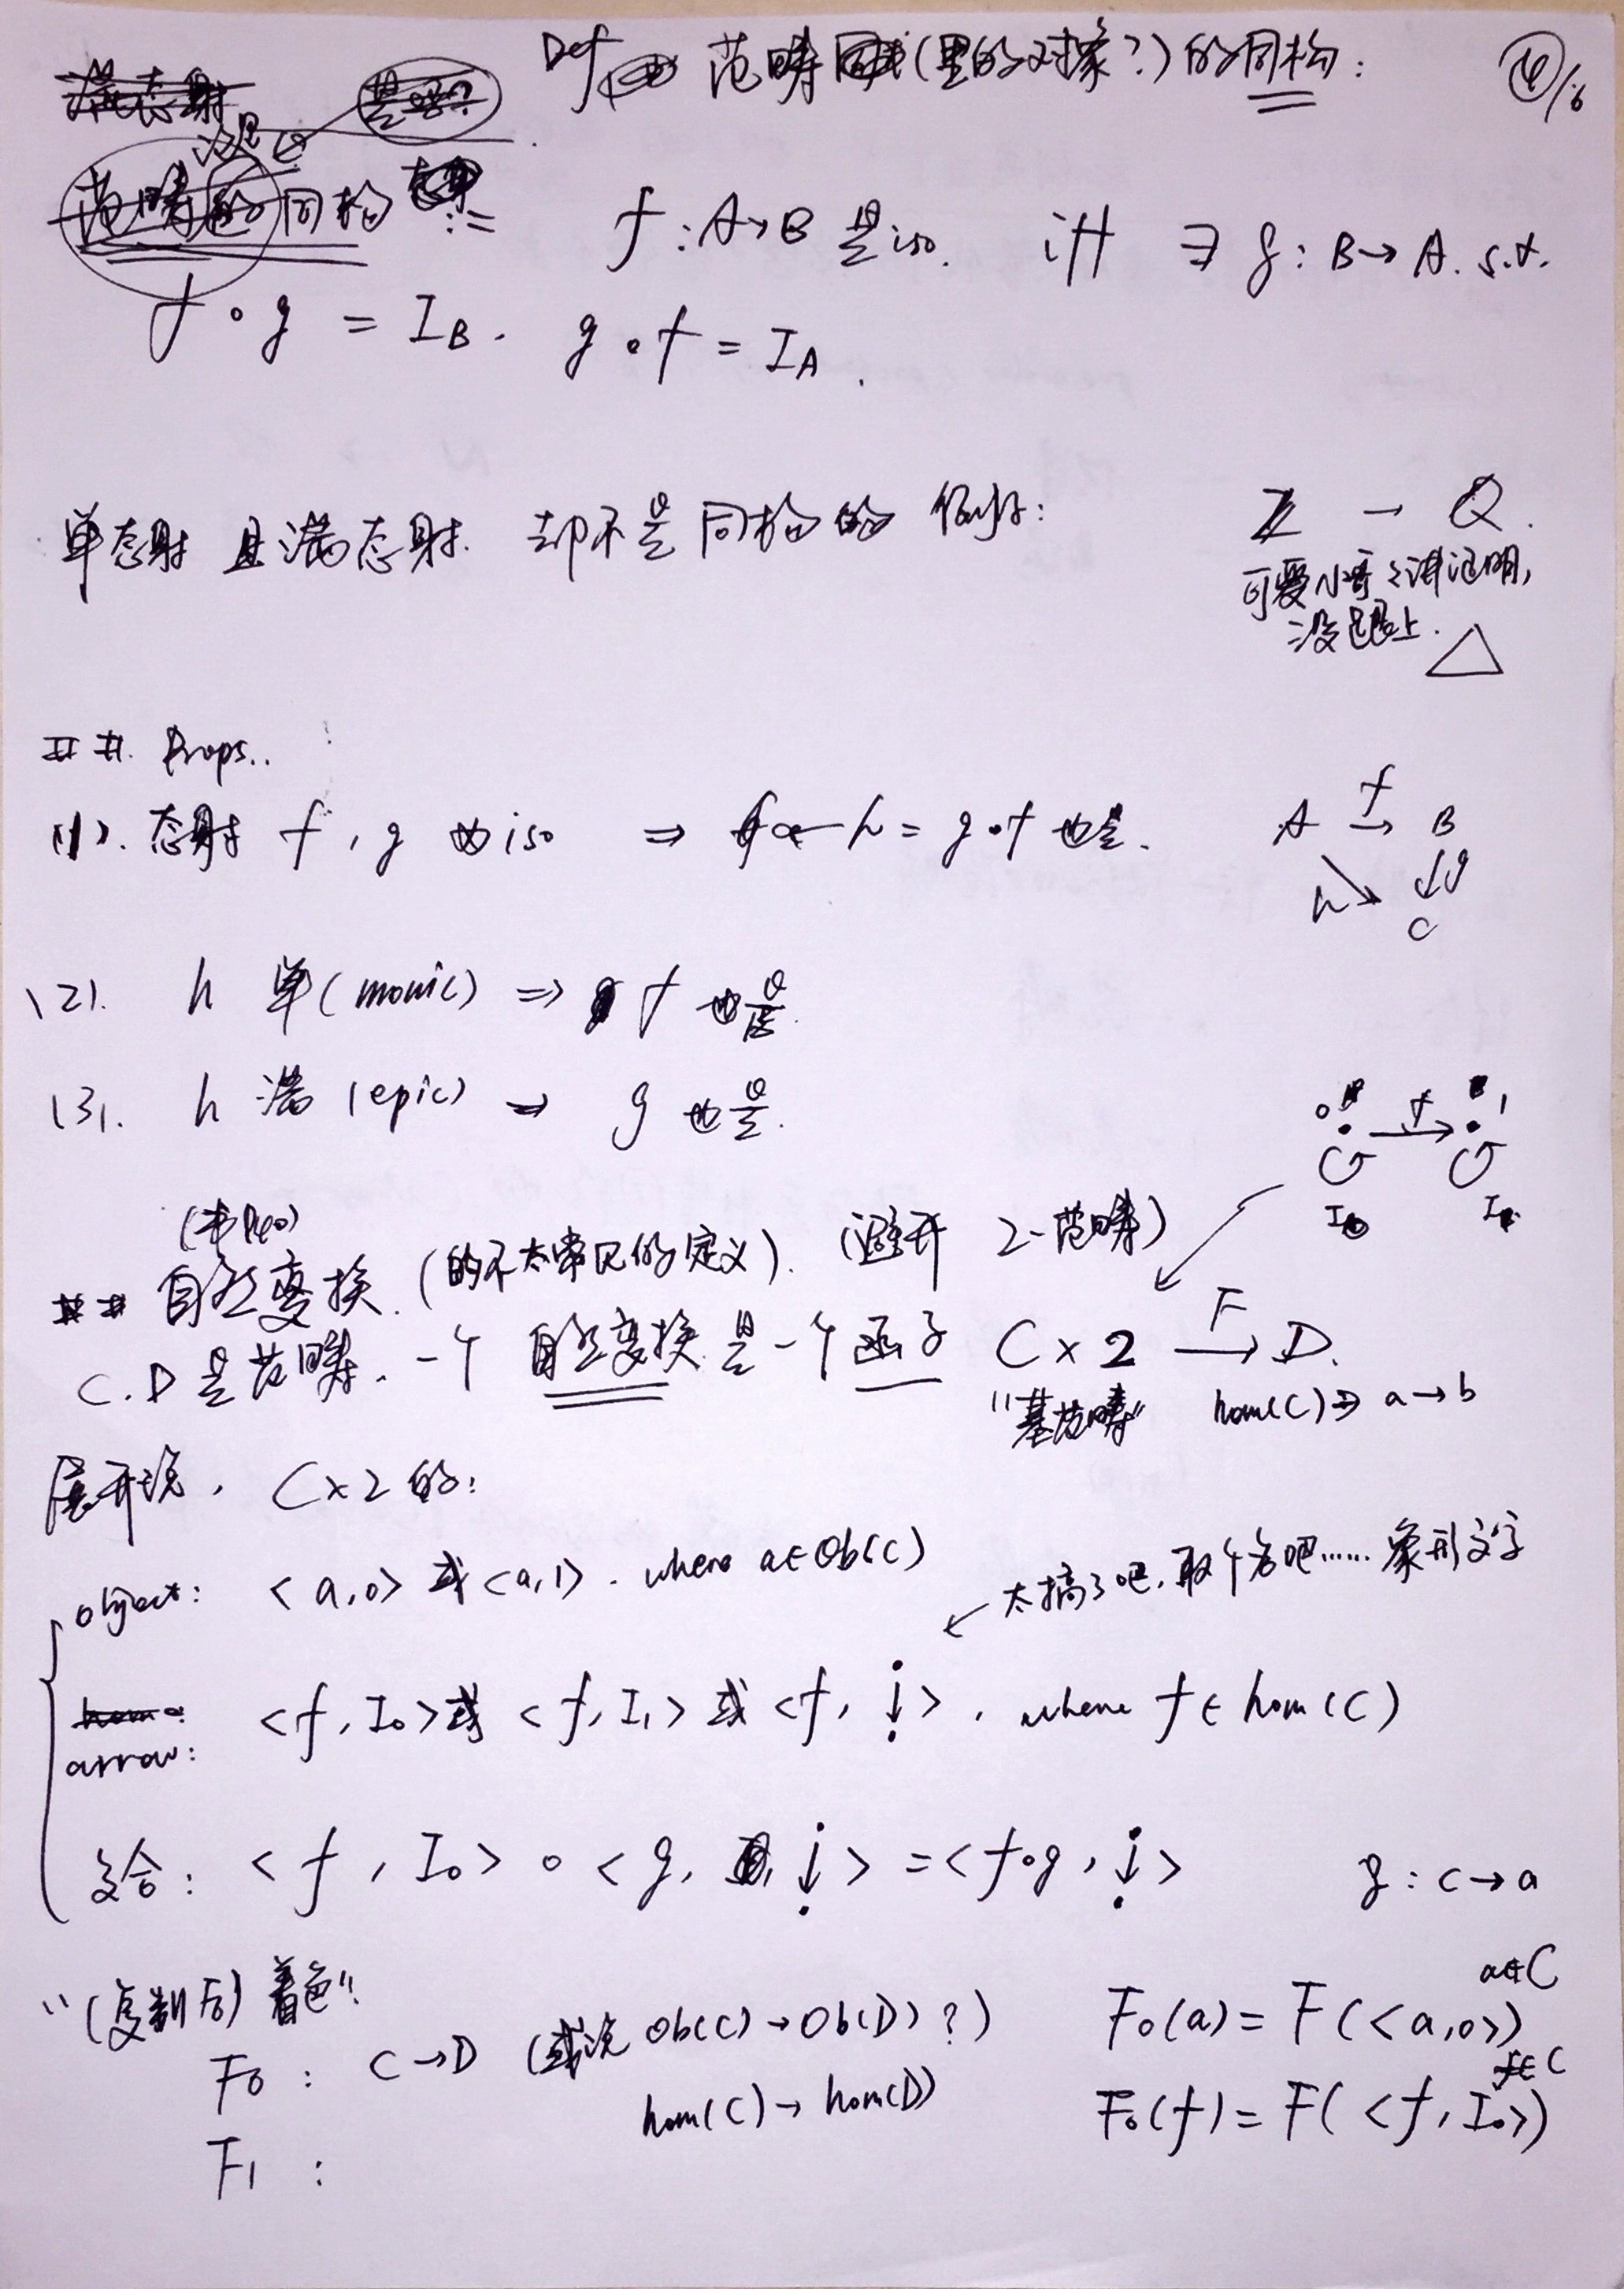 Def 范畴(里的对象?)的同构:
④/6
同构 :=
f : A→B 是 iso. iff ∃ g : B→A. s.t.
f∘g = I_B. g∘f = I_A.
单态射 且满态射 却不是同构的 例子: ℤ → Q.
可爱小哥讲证明,
没跟上. △
## Props..
(1). 态射 f, g 为 iso ⇒ h = g∘f 也是.
A f→ B
h↘ ↓g
C
(2). h 单(monic) ⇒ f 也是.
(3). h 满(epic) ⇒ g 也是.
0 f→ 1
I₀ I₁
(书P40)
## 自然变换. (的不太常见的定义). (避开 2-范畴)
C.D是范畴. 一个 自然变换 是一个函子 C×2 F→ D.
"基范畴" hom(C)∋ a→b
展开说, C×2 的:
object: <a,0> 或 <a,1>. where a∈Ob(C)
← 太搞了吧, 取个名吧...... 象形文字
arrow: <f, I₀> 或 <f, I₁> 或 <f, ↓>, where f ∈ hom(C)
复合: <f, I₀> ∘ <g, ↓> = <f∘g, ↓> g : c→a
"(复制后) 着色"
F₀ : C→D (或说 Ob(C)→Ob(D)?) F₀(a) = F(<a,0>) a∈C
hom(C)→hom(D) F₀(f) = F(<f, I₀>) f∈C
F₁ :